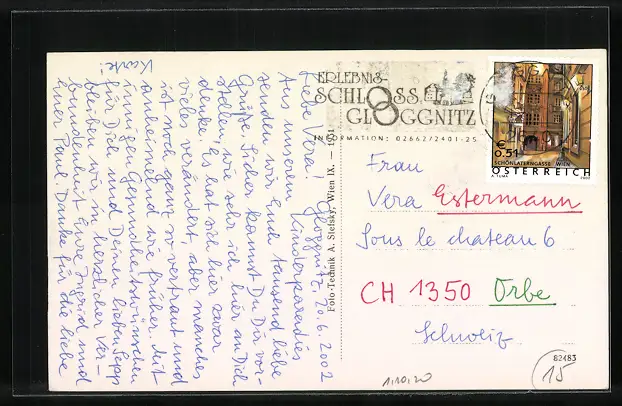 Liebe Vera! Gloggnitz, 20.6.2002
Aus unserem Kinderparadies
senden wir Euch tausend liebe
Grüße. Sicher kannst Du Dir vor-
stellen, wie sehr ich hier an Dich
denke. Es hat sich hier zwar
vieles verändert, aber manches
ist noch ganz so vertraut und
anheimelnd wie früher. Mit
innigen Gesundheitswünschen
für Dich und Deinen lieben Sepp
bleiben wir, in herzlicher Ver-
bundenheit Eure Ingrid und
Euer Paul. Danke für die liebe
Karte!
Foto-Technik A. Stefsky, Wien IX. — 1201
ERLEBNIS-
SCHLOSS
GLOGGNITZ
INFORMATION: 02662/2401-25
€
0,51
SCHÖNLATERNGASSE, WIEN
ÖSTERREICH
A. TUMA
2002
Frau
Vera Estermann
Sous le chateau 6
CH 1350 Orbe
Schweiz
82483
15
1,10,20